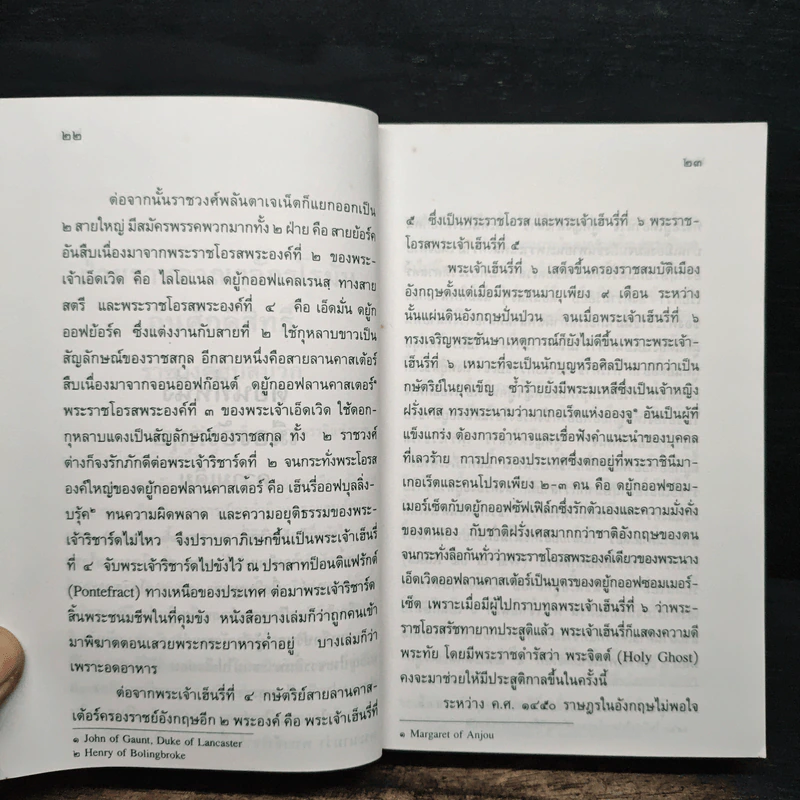 ๒๒
ต่อจากนั้นราชวงศ์พลันตาเจเน็ตก็แยกออกเป็น
๒ สายใหญ่ มีสมัครพรรคพวกมากทั้ง ๒ ฝ่าย คือ สายย้อร์ค
อันสืบเนื่องมาจากพระราชโอรสพระองค์ที่ ๒ ของพระ-
เจ้าเอ็ดเวิด คือ ไลโอแนล ดยุ้กออฟแคลเรนสฺ ทางสาย
สตรี และพระราชโอรสพระองค์ที่ ๔ คือ เอ็ดมั่น ดยุ้ก
ออฟย้อร์ค ซึ่งแต่งงานกับสายที่ ๒ ใช้กุหลาบขาวเป็น
สัญลักษณ์ของราชสกุล อีกสายหนึ่งคือสายลานคาสเต้อร์
สืบเนื่องมาจากจอนออฟก๊อนต์ ดยุ้กออฟลานคาสเตอร์๑
พระราชโอรสพระองค์ที่ ๓ ของพระเจ้าเอ็ดเวิด ใช้ดอก-
กุหลาบแดงเป็นสัญลักษณ์ของราชสกุล ทั้ง ๒ ราชวงศ์
ต่างก็จงรักภักดีต่อพระเจ้าริชาร์ดที่ ๒ จนกระทั่งพระโอรส
องค์ใหญ่ของดยุ้กออฟลานคาสเต้อร์ คือ เฮ็นรี่ออฟบุลลิ่ง-
บรุ้ค๒ ทนความผิดพลาด และความอยุติธรรมของพระ-
เจ้าริชาร์ดไม่ไหว จึงปราบดาภิเษกขึ้นเป็นพระเจ้าเฮ็นรี่
ที่ ๔ จับพระเจ้าริชาร์ดไปขังไว้ ณ ปราสาทป็อนติแฟรักต์
(Pontefract) ทางเหนือของประเทศ ต่อมาพระเจ้าริชาร์ด
สิ้นพระชนม์ชีพในที่คุมขัง หนังสือบางเล่มก็ว่าถูกคนเข้า
มาพิฆาตตอนเสวยพระกระยาหารค่ำอยู่ บางเล่มก็ว่า
เพราะอดอาหาร
ต่อจากพระเจ้าเฮ็นรี่ที่ ๔ กษัตริย์สายลานคาส-
เต้อร์ครองราชย์อังกฤษอีก ๒ พระองค์ คือ พระเจ้าเฮ็นรี่ที่
๑ John of Gaunt, Duke of Lancaster
๒ Henry of Bolingbroke
๒๓
๕ ซึ่งเป็นพระราชโอรส และพระเจ้าเฮ็นรี่ที่ ๖ พระราช-
โอรสพระเจ้าเฮ็นรี่ที่ ๕
พระเจ้าเฮ็นรี่ที่ ๖ เสด็จขึ้นครองราชสมบัติเมือง
อังกฤษตั้งแต่เมื่อมีพระชนมายุเพียง ๙ เดือน ระหว่าง
นั้นแผ่นดินอังกฤษปั่นป่วน จนเมื่อพระเจ้าเฮ็นรี่ที่ ๖
ทรงเจริญพระชันษาเหตุการณ์ก็ยังไม่ดีขึ้นเพราะพระเจ้า-
เฮ็นรี่ที่ ๖ เหมาะที่จะเป็นนักบุญหรือศิลปินมากกว่าเป็น
กษัตริย์ในยุคเข็ญ ซ้ำร้ายยังมีพระมเหสีซึ่งเป็นเจ้าหญิง
ฝรั่งเศส ทรงพระนามว่ามาเกอเร็ตแห่งอองจู๑ อันเป็นผู้ที่
แข็งแกร่ง ต้องการอำนาจและเชื่อฟังคำแนะนำของบุคคล
ที่เลวร้าย การปกครองประเทศซึ่งตกอยู่ที่พระราชินีมา-
เกอเร็ตและคนโปรดเพียง ๒-๓ คน คือ ดยุ้กออฟซอม-
เมอร์เซ็ตกับดยุ้กออฟซัฟเฟิล์กซึ่งรักตัวเองและความมั่งคั่ง
ของตนเอง กับชาติฝรั่งเศสมากกว่าชาติอังกฤษของตน
จนกระทั่งลือกันทั่วว่าพระราชโอรสพระองค์เดียวของพระนาง
เอ็ดเวิดออฟลานคาสเต้อร์เป็นบุตรของดยุ้กออฟซอมเมอร์-
เซ็ต เพราะเมื่อมีผู้ไปกราบทูลพระเจ้าเฮ็นรี่ที่ ๖ ว่าพระ-
ราชโอรสรัชทายาทประสูติแล้ว พระเจ้าเฮ็นรี่ก็แสดงความดี
พระทัย โดยมีพระราชดำรัสว่า พระจิตต์ (Holy Ghost)
คงจะมาช่วยให้มีประสูติกาลขึ้นในครั้งนี้
ระหว่าง ค.ศ. ๑๔๕๐ ราษฎรในอังกฤษไม่พอใจ
๑ Margaret of Anjou